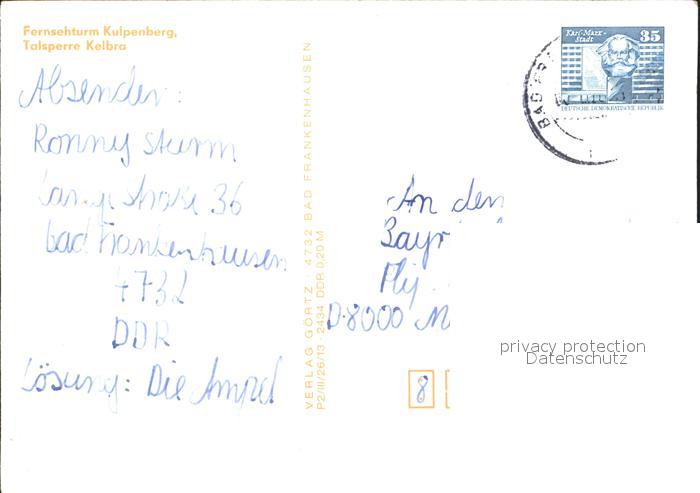 Fernsehturm Kulpenberg,
Talsperre Kelbra
Absender:
Ronny Sturm
Lange Straße 36
Bad Frankenhausen
4732
DDR
Lösung: Die Ampel
VERLAG GÖRTZ · 4732 BAD FRANKENHAUSEN
P2/III/26/13 · 2434 DDR 0,20 M
Karl-Marx-
Stadt
35
DEUTSCHE DEMOKRATISCHE REPUBLIK
BAD FR
An den
Bayr
D-8000 M
8
privacy protection
Datenschutz